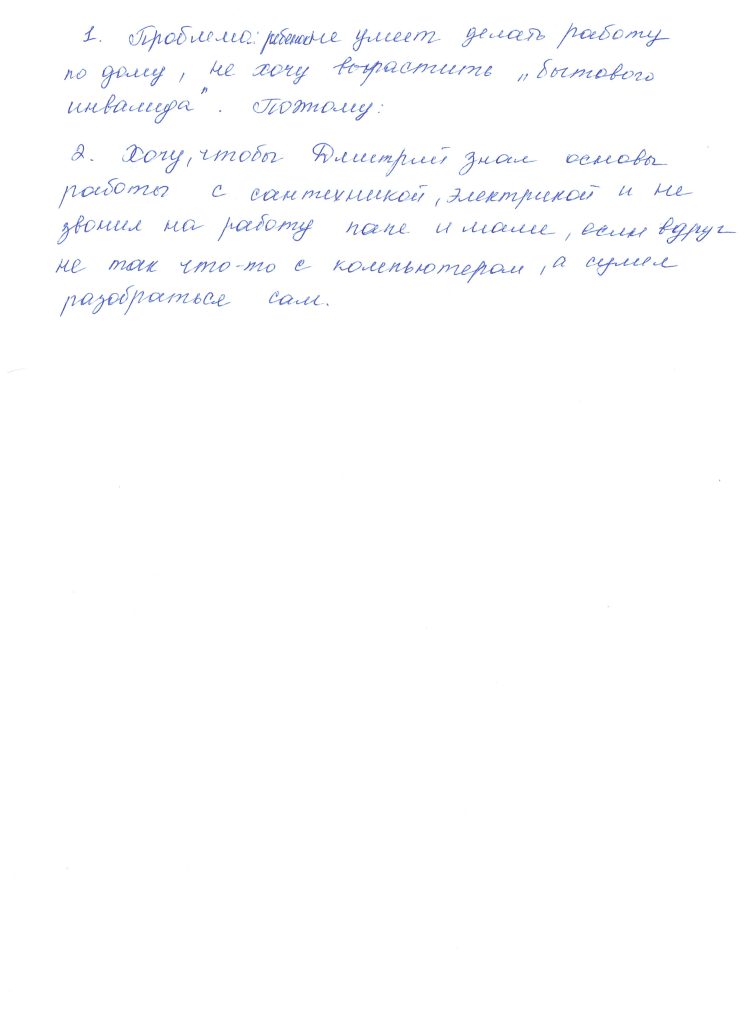 1. Проблема: ребенок не умеет делать работу
по дому, не хочу вырастить „бытового
инвалида". Поэтому:
2. Хочу, чтобы Дмитрий знал основы
работы с сантехникой, электрикой и не
звонил на работу папе и маме, если вдруг
не так что-то с компьютером, а сумел
разобраться сам.